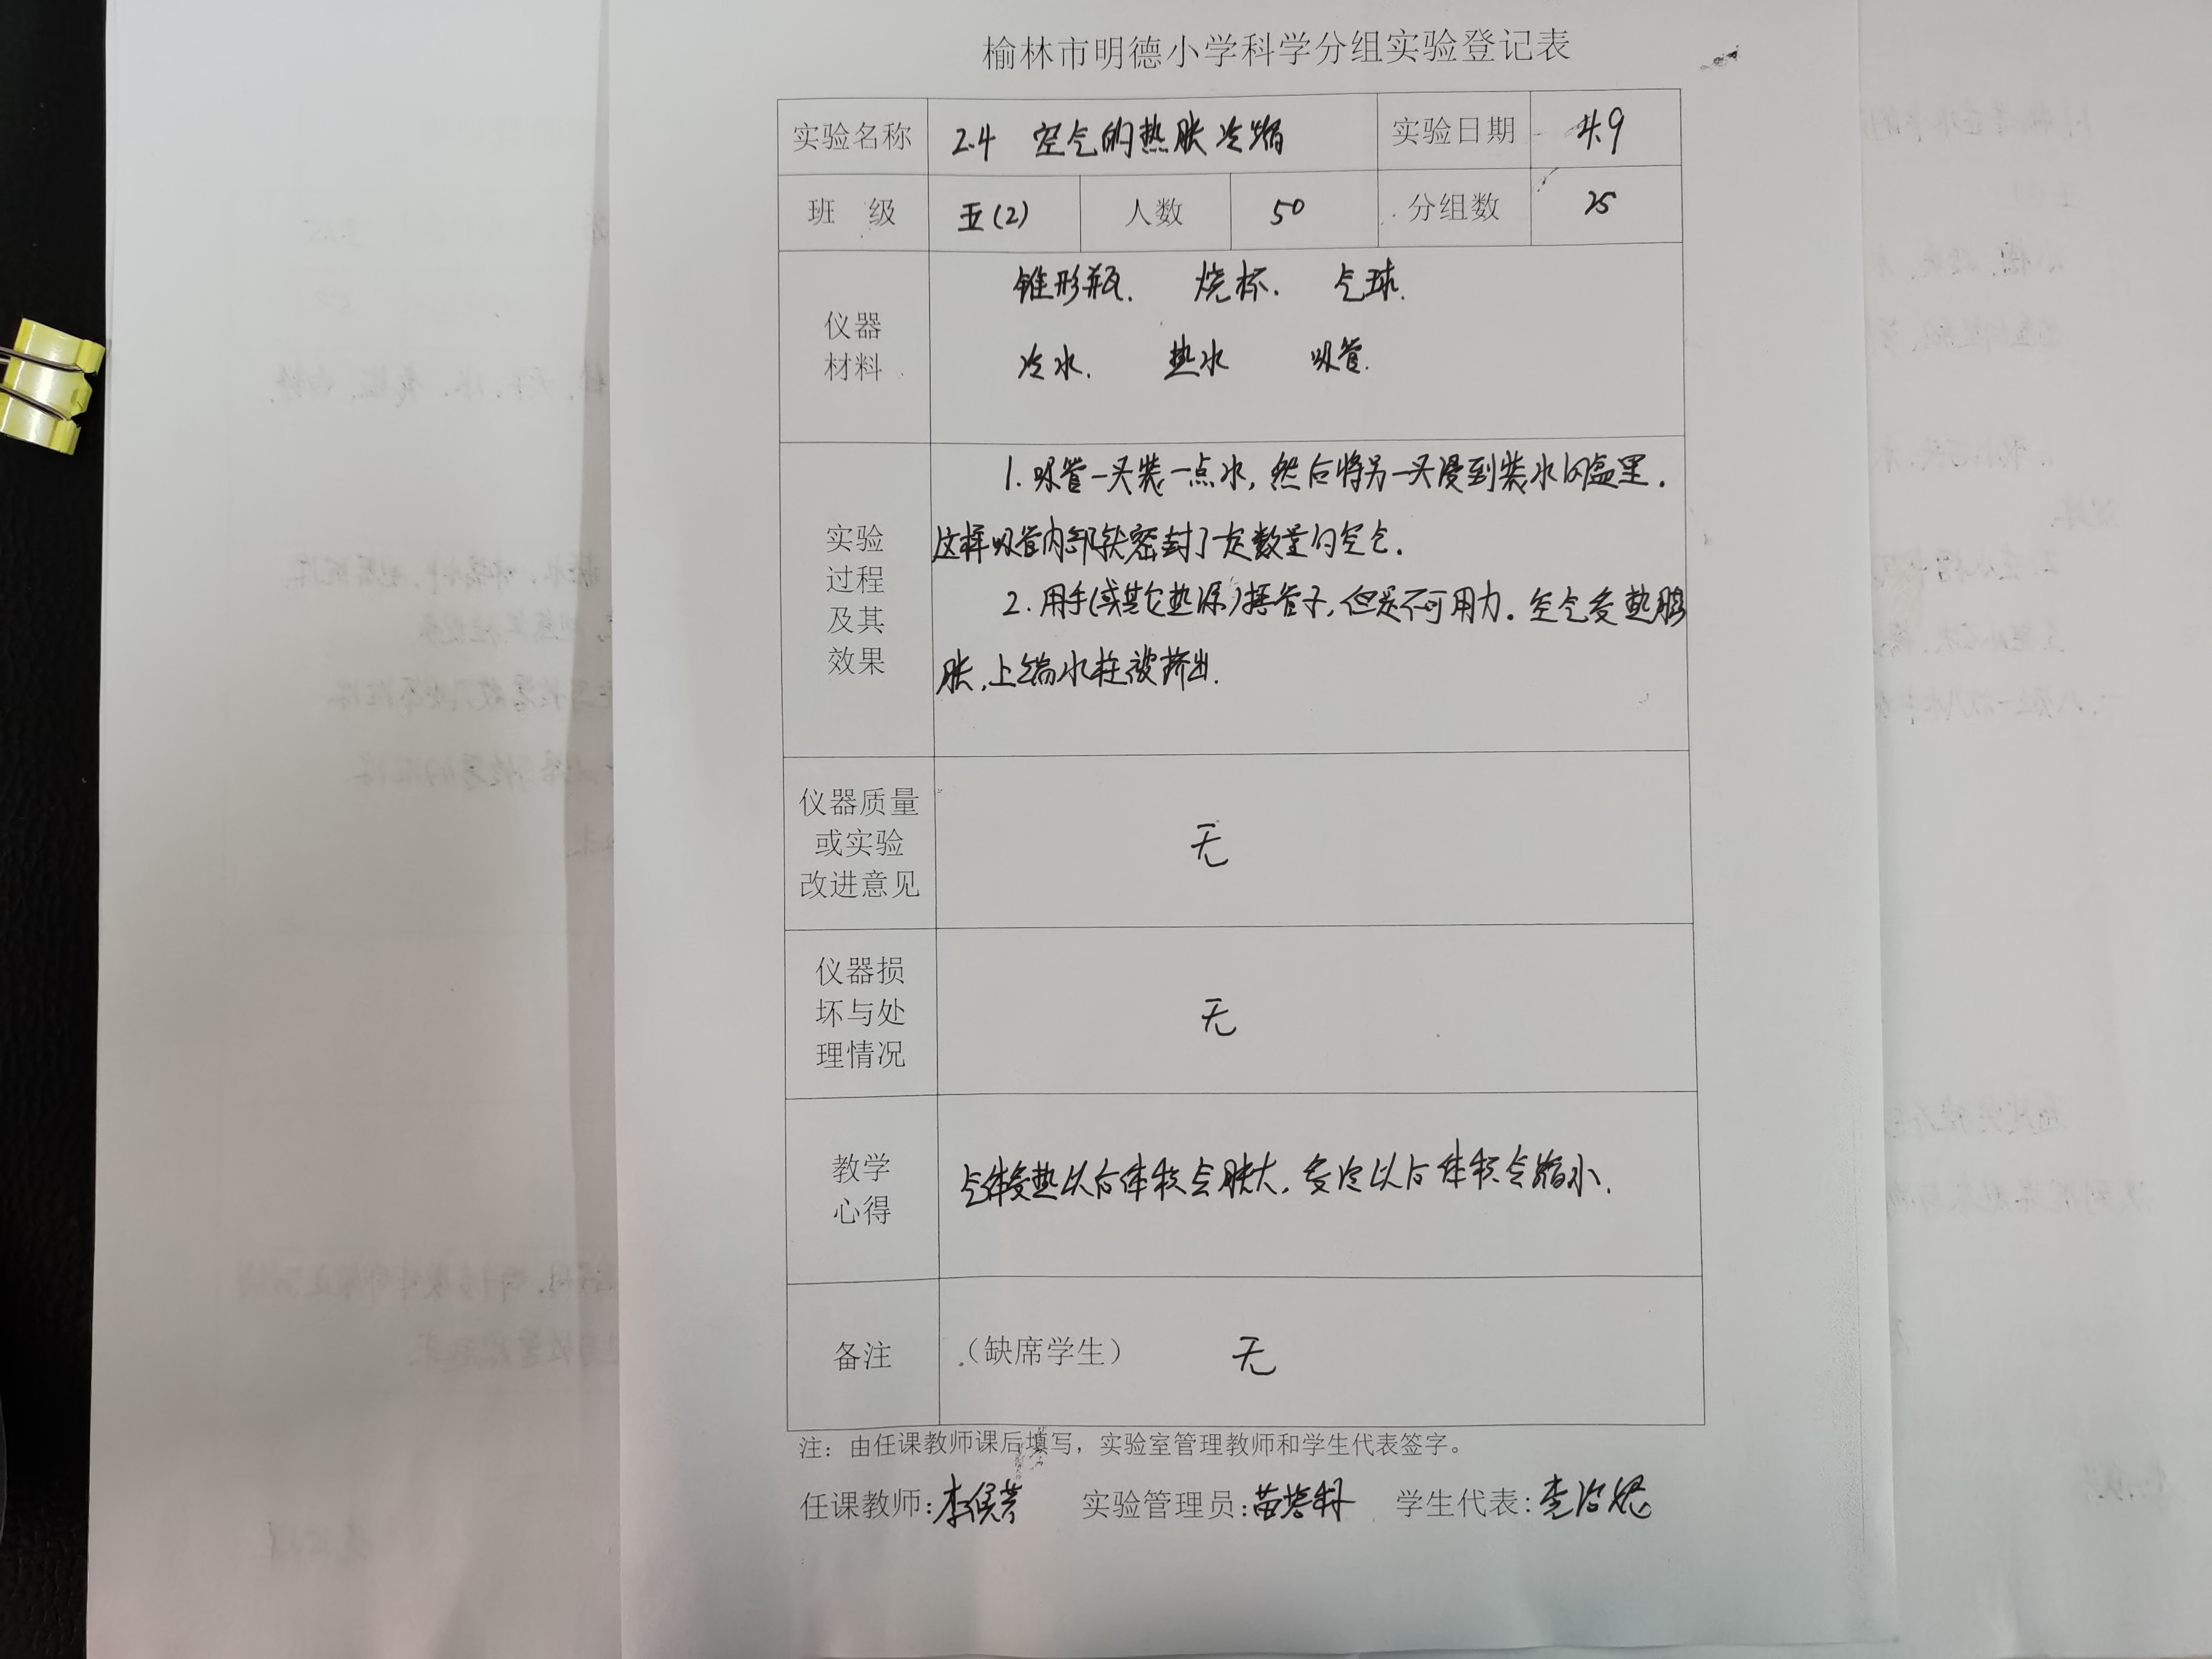 榆林市明德小学科学分组实验登记表
实验名称 2.4 空气的热胀冷缩 实验日期 4.9
班 级 五(2) 人数 50 分组数 25
仪器
材料
锥形瓶. 烧杯. 气球.
冷水. 热水 吸管.
实验
过程
及其
效果
1. 吸管一头装一点水, 然后将另一头浸到装水的盆里.
这样吸管内部就密封了一定数量的空气.
2. 用手(或其它热源)捂管子, 但是不可用力. 空气受热膨
胀, 上端水柱被挤出.
仪器质量
或实验
改进意见
无
仪器损
坏与处
理情况
无
教学
心得
气体受热以后体积会胀大, 受冷以后体积会缩小.
备注 (缺席学生) 无
注: 由任课教师课后填写, 实验室管理教师和学生代表签字。
任课教师: 实验管理员: 学生代表: